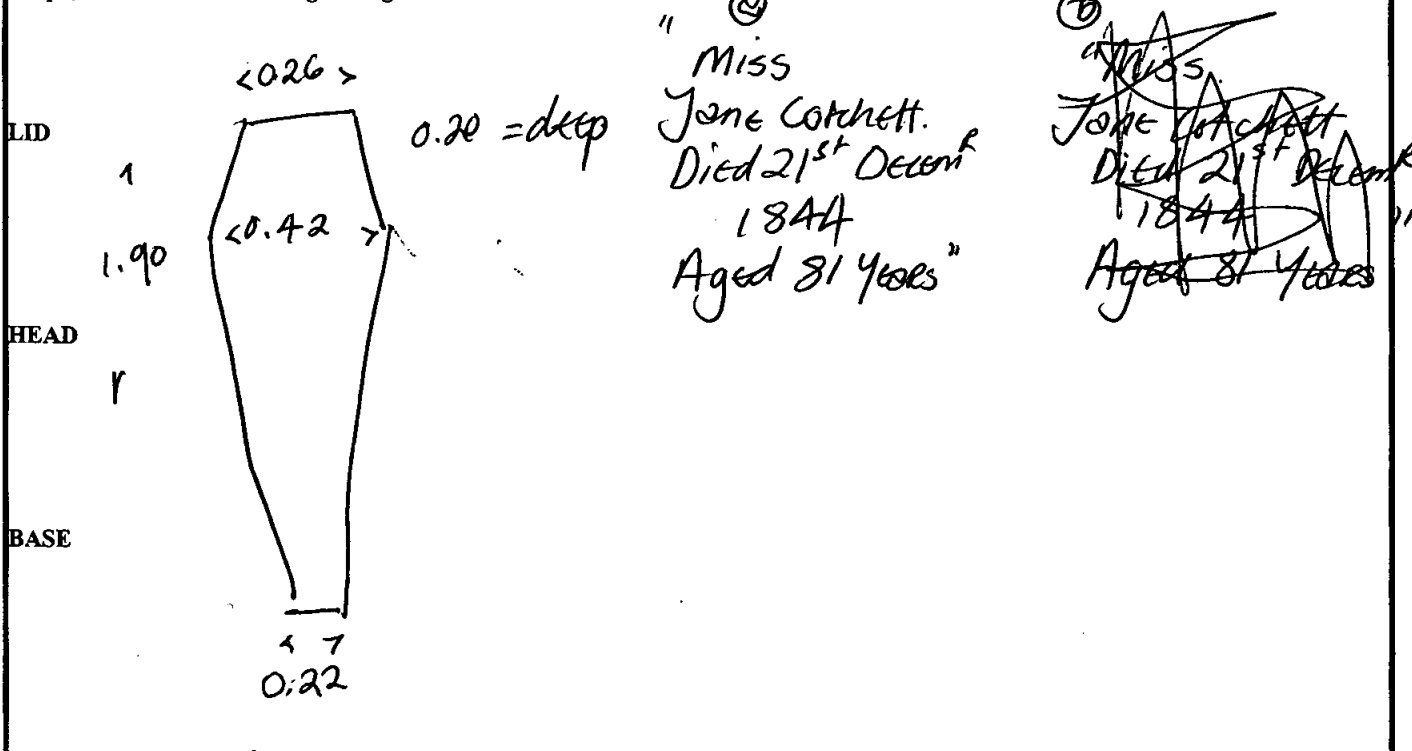 <0.26>
LID
0.20 = deep
1.90
<0.42>
HEAD
BASE
0.22
(a)
"Miss
Jane Cotchett.
Died 21st Decemr
1844
Aged 81 Years"
(b)
"Miss.
Jane Cotchett
Died 21st Decemr
1844"
Aged 81 Years